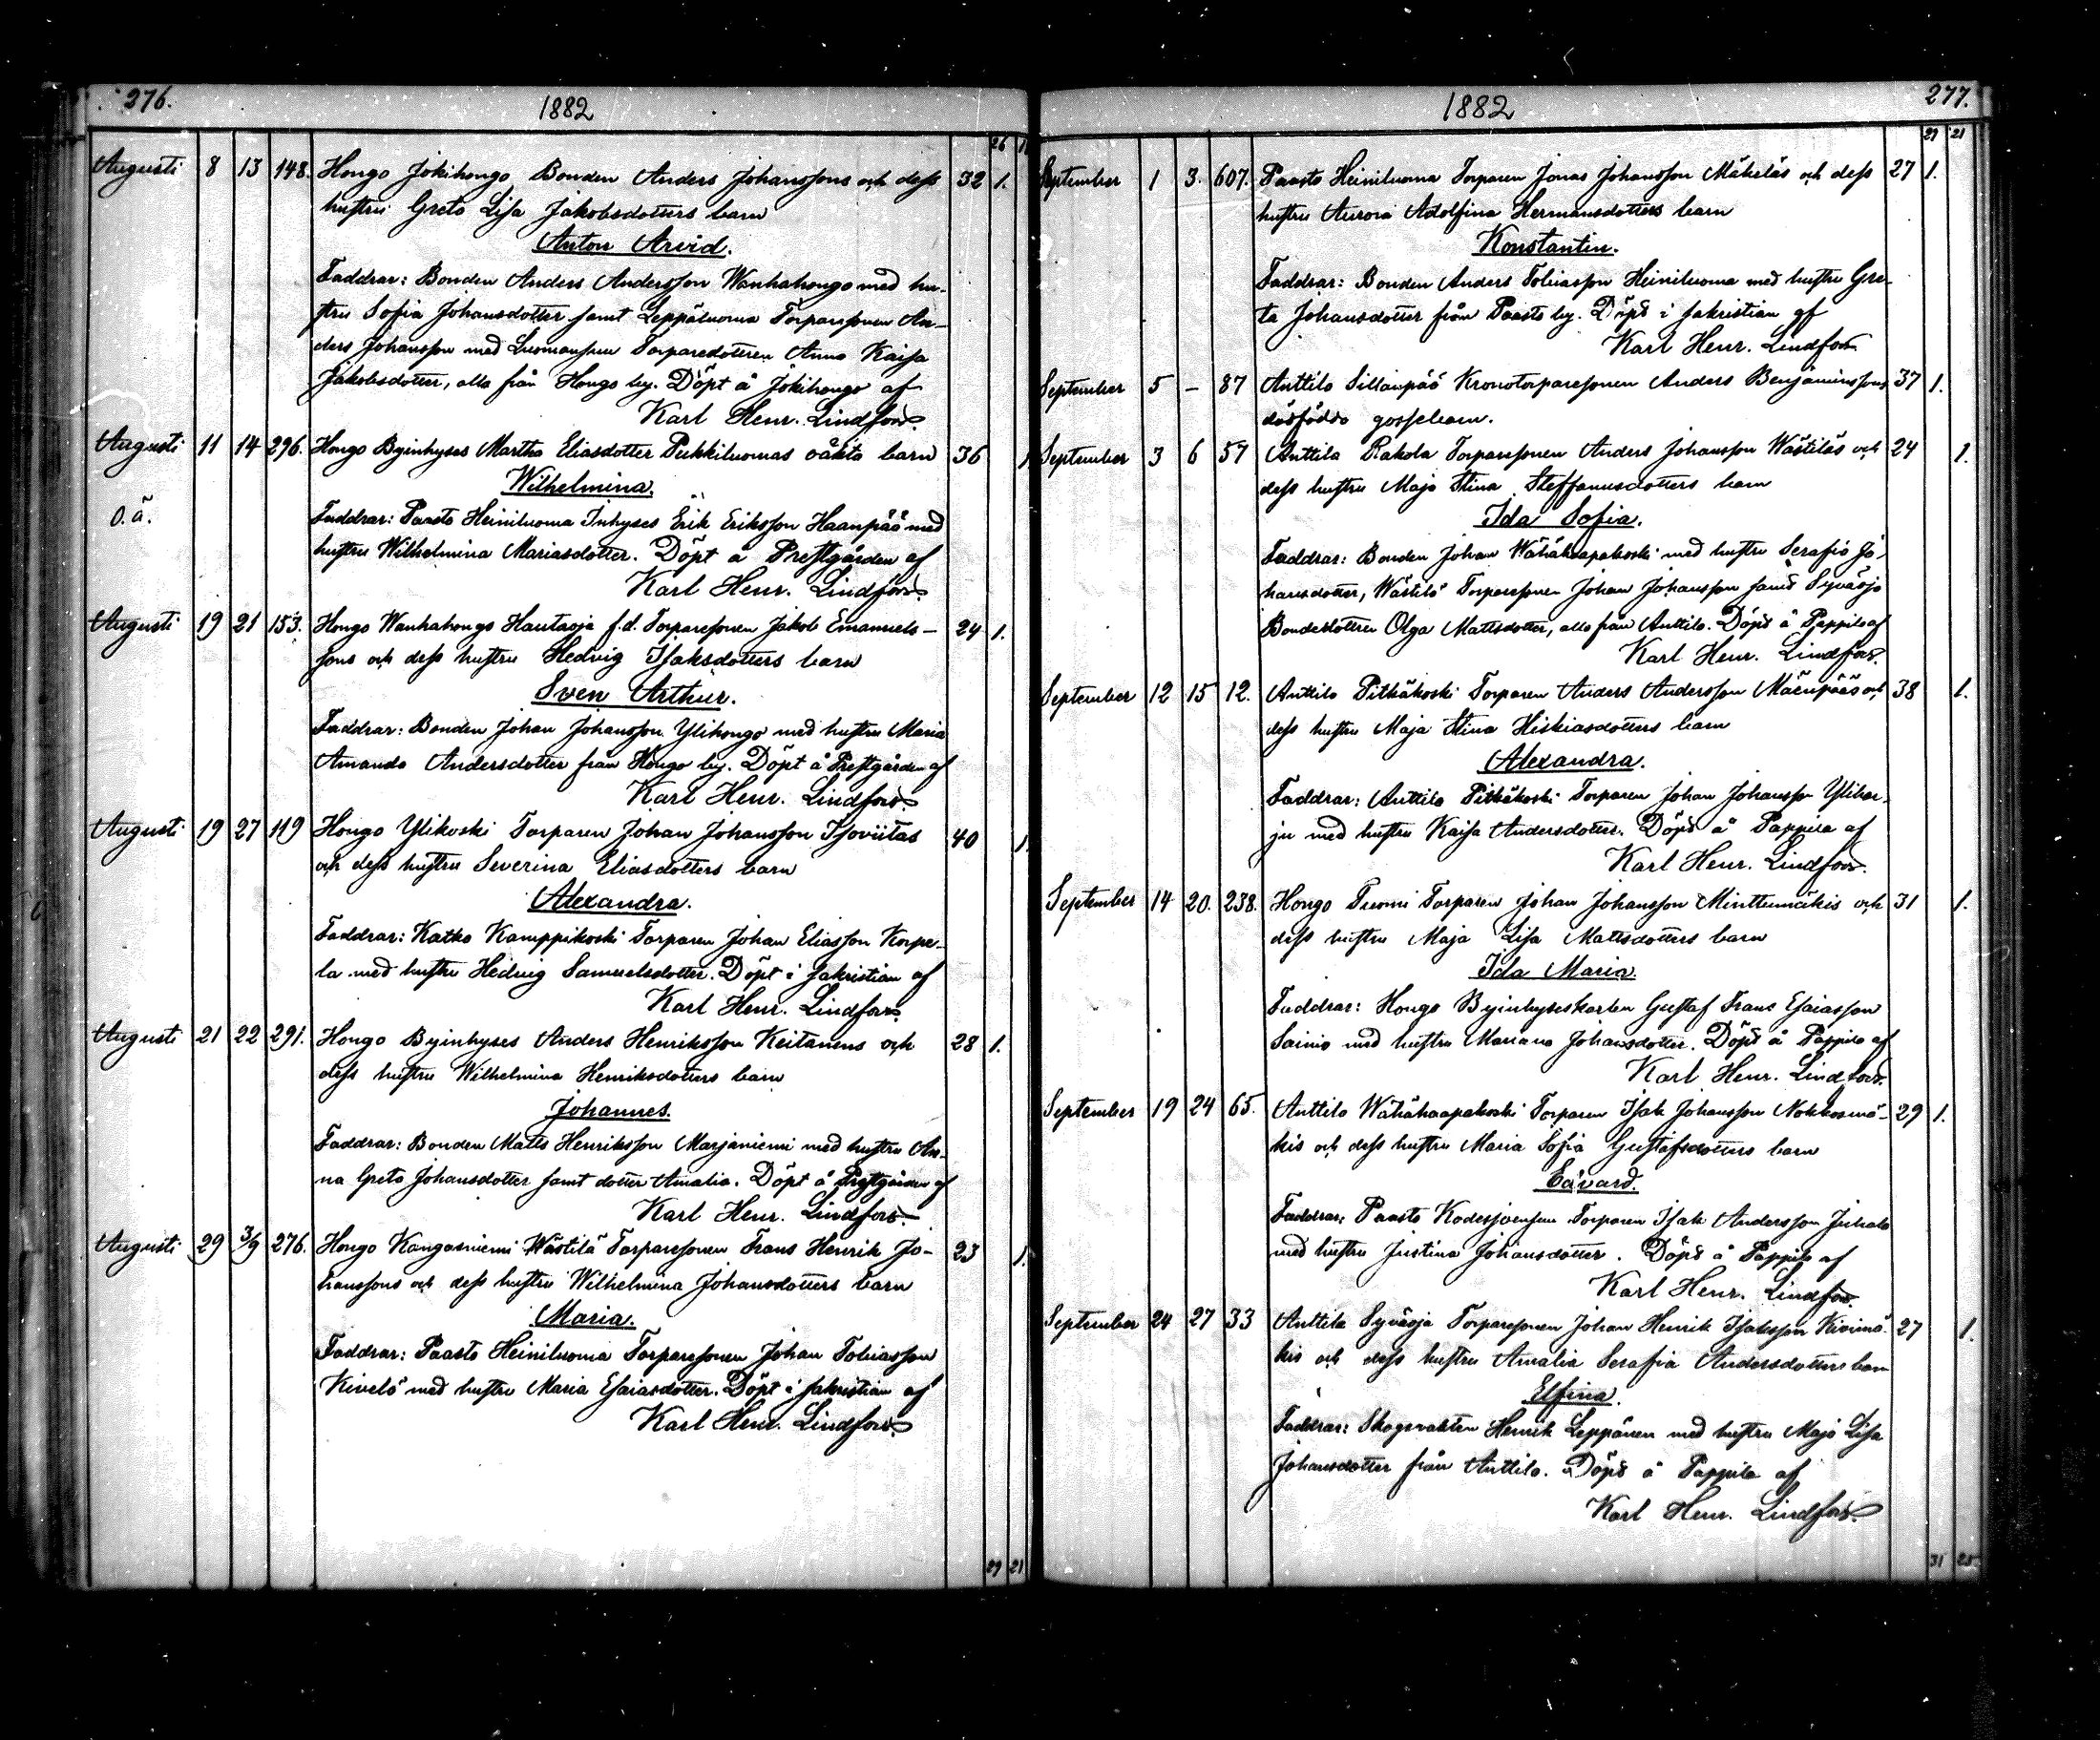 276.
1882
26
Augusti 8 13 148. Hongo Jokihongo Bonden Anders Johanssons och dess 32 1.
hustru Greta Lisa Jakobsdotters barn
Anton Arvid.
Faddrar: Bonden Anders Andersson Wanhahongo med hu-
stru Sofia Johansdotter samt Leppäluoma Torparesonen An-
ders Johansson med Luomansuu Torparedottren Anna Kaisa
Jakobsdotter, alla från Hongo by. Döpt å Jokihongo af
Karl Henr. Lindfors.
Augusti 11 14 296. Hongo Byinhyses Martha Eliasdotter Pukkiluomas oäkta barn 36 1
Wilhelmina.
O.ä.
Faddrar: Paasto Heiniluoma Inhyses Erik Eriksson Haanpää med
hustru Wilhelmina Mariasdotter. Döpt å Prestgården af
Karl Henr. Lindfors.
Augusti 19 21 153. Hongo Wanhahongo Hautaoja f.d. Torparesonen Jakob Emanuels- 24 1.
sons och dess hustru Hedvig Isaksdotters barn
Sven Arthur.
Faddrar: Bonden Johan Johansson Ylihongo med hustru Maria
Amanda Andersdotter från Hongo by. Döpt å Prestgården af
Karl Henr. Lindfors.
Augusti 19 27 119 Hongo Ylikoski Torparen Johan Johansson Isoviitas 40 1.
och dess hustru Severina Eliasdotters barn
Alexandra.
Faddrar: Katko Kamppikoski Torparen Johan Eliasson Korpe-
la med hustru Hedvig Samuelsdotter. Döpt i sakristian af
Karl Henr. Lindfors.
Augusti 21 22 291. Hongo Byinhyses Anders Henriksson Keitanens och 28 1.
dess hustru Wilhelmina Henriksdotters barn
Johannes.
Faddrar: Bonden Matts Henriksson Marjaniemi med hustru An-
na Greta Johansdotter samt dotter Amalia. Döpt å Prestgården af
Karl Henr. Lindfors.
Augusti 29 3/9 276. Hongo Kangasniemi Wästilä Torparesonen Frans Henrik Jo- 23 1.
hanssons och dess hustru Wilhelmina Johansdotters barn
Maria.
Faddrar: Paasto Heiniluoma Torparesonen Johan Tobiasson
Kivelä med hustru Maria Esaiasdotter. Döpt i sakristian af
Karl Henr. Lindfors.
27 21
277.
1882
27 21
September 1 3. 607. Paasto Heiniluoma Torparen Jonas Johansson Mäkeläs och dess 27 1.
hustru Aurora Adolfina Hermansdotters barn
Konstantin.
Faddrar: Bonden Anders Tobiasson Heiniluoma med hustru Gre-
ta Johansdotter från Paasto by. Döpt i sakristian af
Karl Henr. Lindfors
September 5 – 87 Anttila Sillanpää Kronotorparesonen Anders Benjaminssons 37 1.
dödfödda gossebarn.
September 3 6 57 Anttila Rakola Torparesonen Anders Johansson Wästiläs och 24 1.
dess hustru Maja Stina Steffanusdotters barn
Ida Sofia.
Faddrar: Bonden Johan Wähähaapakoski med hustru Serafia Jo-
hansdotter, Wästilä Torparesonen Johan Johansson samt Syväoja
Bondedottren Olga Mattsdotter, alla från Anttila. Döpt å Pappila af
Karl Henr. Lindfors.
September 12 15 12. Anttila Pitkäkoski Torparen Anders Andersson Mäenpääs och 38 1.
dess hustru Maja Stina Hiskiasdotters barn
Alexandra.
Faddrar: Anttila Pitkäkoski Torparen Johan Johansson Ylihar-
ju med hustru Kaisa Andersdotter. Döpt å Pappila af
Karl Henr. Lindfors.
September 14 20. 238. Hongo Tuomi Torparen Johan Johansson Minttumäkis och 31 1.
dess hustru Maja Lisa Mattsdotters barn
Ida Maria.
Faddrar: Hongo Byinhyseskarlen Gustaf Frans Esaiasson
Sainio med hustru Mariana Johansdotter. Döpt å Pappila af
Karl Henr. Lindfors.
September 19 24 65. Anttila Wähähaapakoski Torparen Isak Johansson Nokkosmä- 29 1.
kis och dess hustru Maria Sofia Gustafsdotters barn
Edvard.
Faddrar: Paasto Kodesjoensuu Torparen Isak Andersson Juhala
med hustru Justina Johansdotter. Döpt å Pappila af
Karl Henr. Lindfors.
September 24 27 33 Anttila Syväoja Torparesonen Johan Henrik Isaksson Kivimä- 27 1.
kis och dess hustru Amalia Serafia Andersdotters barn
Elfina.
Faddrar: Skogsvakten Henrik Leppänen med hustru Maja Lisa
Johansdotter från Anttila. Döpt å Pappila af
Karl Henr. Lindfors.
31 25